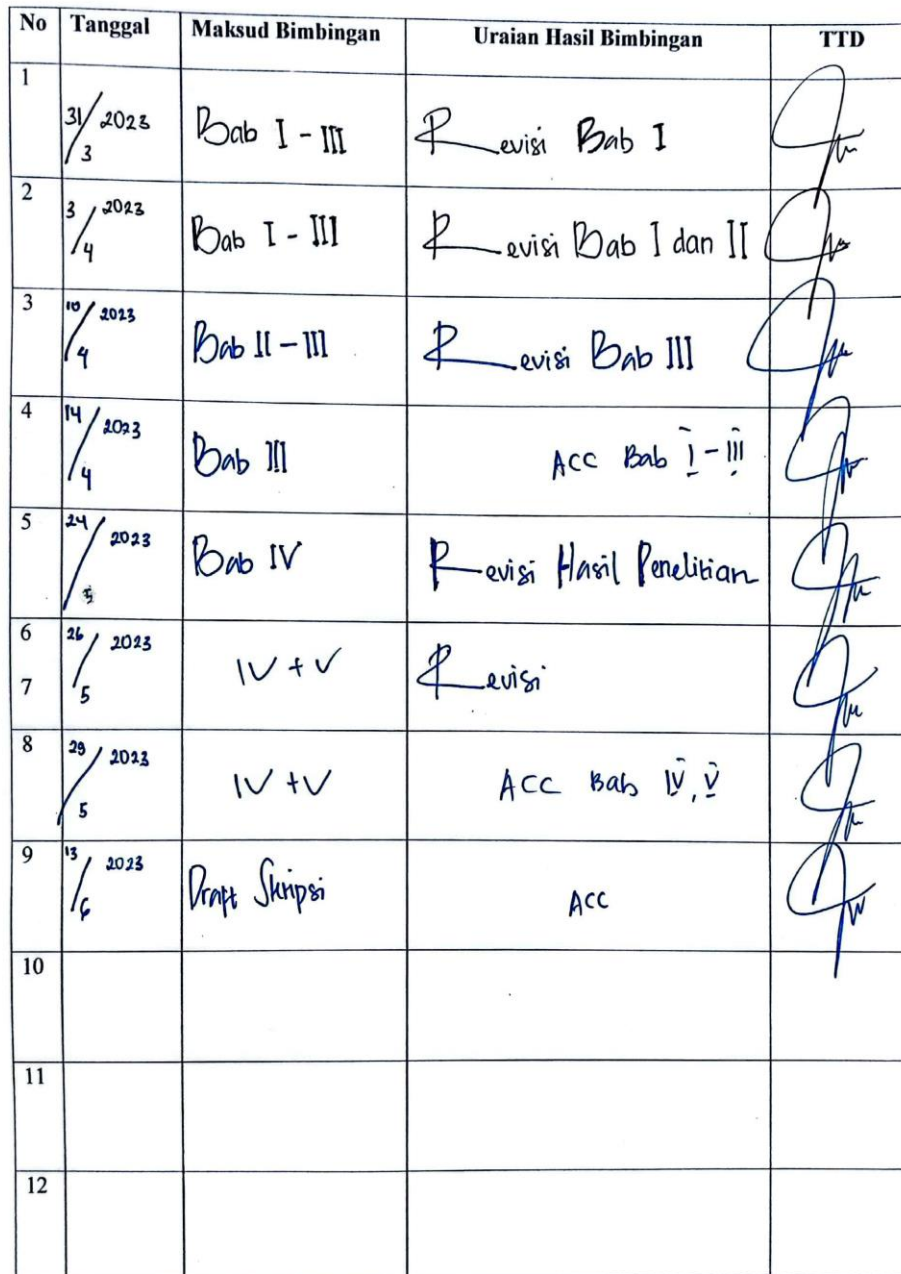 No Tanggal Maksud Bimbingan Uraian Hasil Bimbingan TTD
1
31/3 2023 Bab I - III Revisi Bab I
2
3/4 2023 Bab I - III Revisi Bab I dan II
3
10/4 2023 Bab II - III Revisi Bab III
4
14/4 2023 Bab III ACC Bab I - III
5
24/ 2023 Bab IV Revisi Hasil Penelitian
6
26/5 2023 IV + V Revisi
7
8
29/5 2023 IV + V ACC Bab IV, V
9
13/6 2023 Draft Skripsi ACC
10
11
12